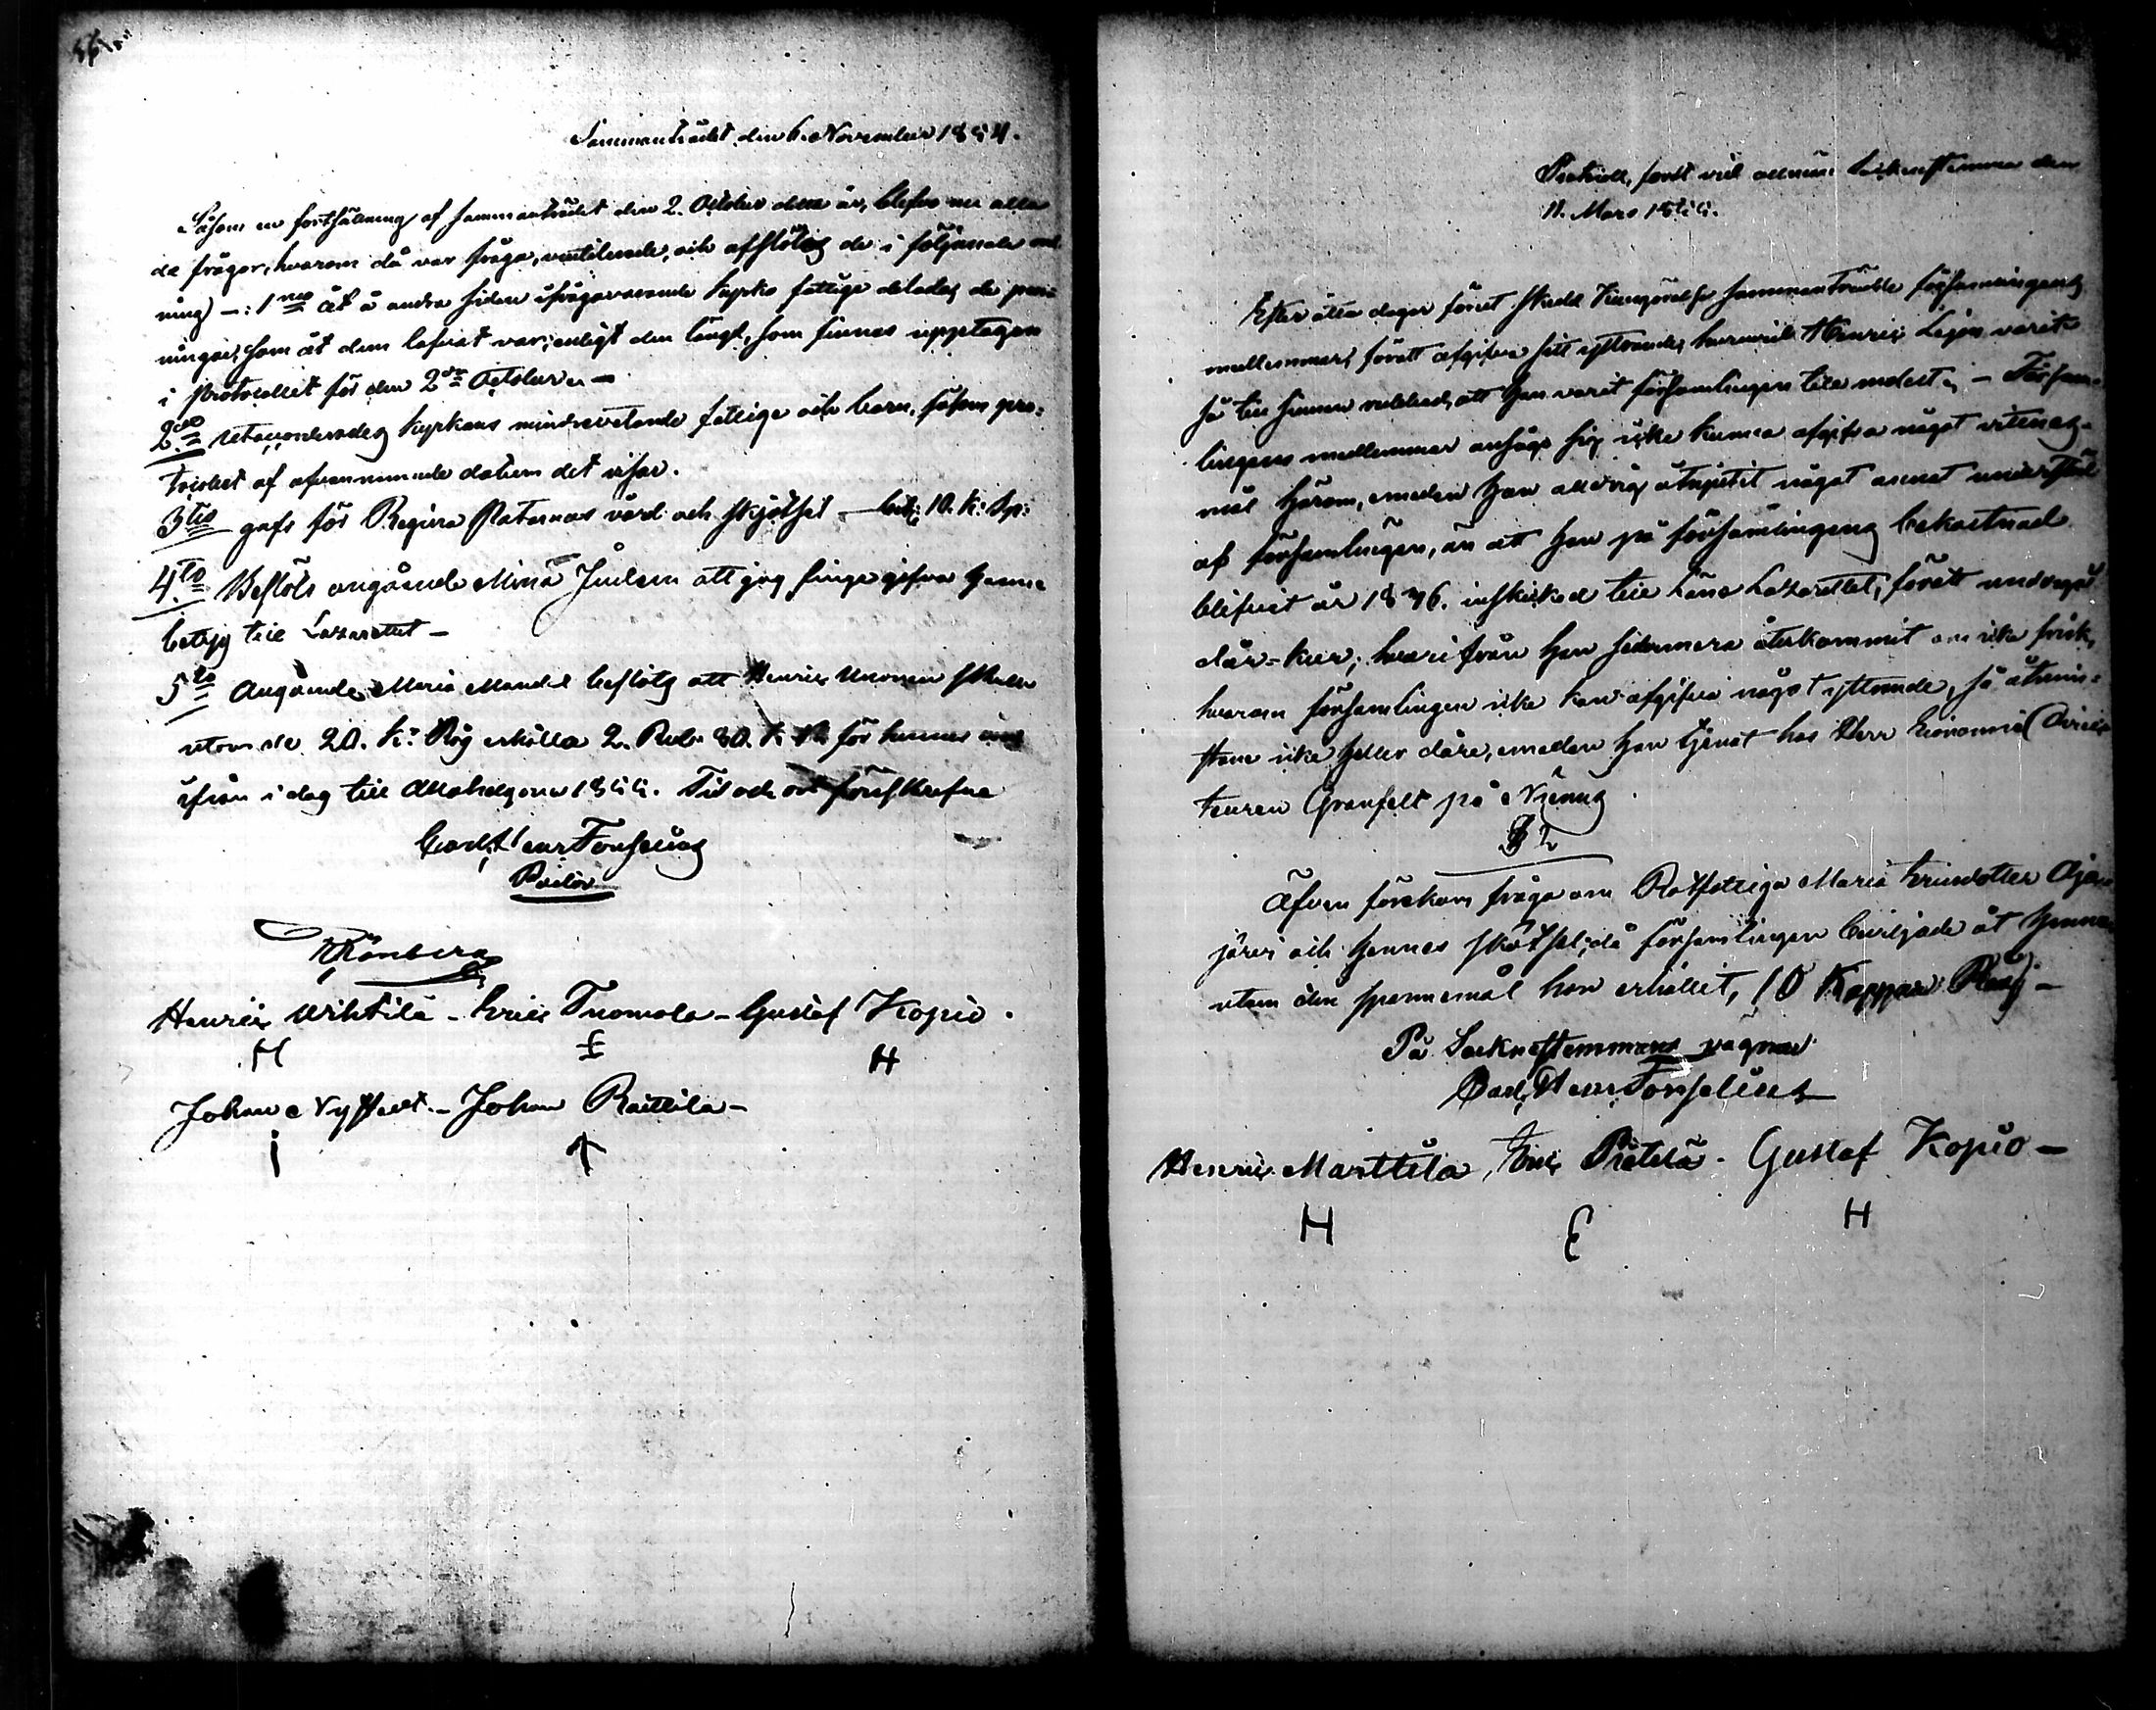 Sammanträdet den 6. November 1854.
Såsom en fortsättning af sammanträdet den 2. October detta år, blefvo nu alla
de frågor, hvarom då var fråga, ventilerade, och afslötos de i följande ord-
ning) —: 1mo Åt å andra sidan ifrågavarande Kyrko fattige delades de pen-
ningar, som åt dem lofvat var, enligt den längd, som finnes upptagen
i protocollet för den 2dra October. —
2do Kyrkans mindrevetande fattige och barn, såsom pro-
tocollet af ofvannämnde datum det visar.
3tio gafs för Regina vård och skjötsel — 10. k: Sp:
4to Beslöts angående Mina att jag finge gifva henne
betyg till Lazarettet —
5to Angående Maria Mandel beslöts att Henric Uronen skulle
utom de 20. k: Råg erhålla 2. Rub. 80. k. för hennes
ifrån i dag till Allahelgona 1855. Tid och ort förutskrefne
Carl Henr Forselius
Pastor
Rönberg
Henric Uihtilä - Eric Tuomola - Gustaf Kopio.
H E H
Johan Nystedt. - Johan Raittila -
Protocoll, fördt vid allmän Sockenstemma den
11. Mars 1855.
Efter åtta dagar förut skedd Kungörelse sammanträdde församlingens
medlemmar, föratt afgifva sitt yttrande, huruvida Henric Lejon varit
så till sinnes rubbad, att han varit församlingen till möda. — Församl-
lingens medlemmar ansågo sig icke kunna afgifva något vitnes-
mål härom, emedan han alldrig åtnjutit något annat understöd
af församlingen, än att han på församlingens bekostnad
blifvit år 1846. inskickad till Läns Lazarettet, föratt undergå
dår-kur; hvarifrån han sedermera återkommit om icke frisk,
hvarom församlingen icke kan afgifva något yttrande, så åtmin-
stone icke heller dåre, emedan han tjenat hos Herr Economie Direc-
teuren Granfelt på
§ 2
Äfven förekom fråga om Rotfattiga Maria Ericsdotter Aja-
järvi och hennes skötsel; då församlingen beviljade åt henne
utom den spannemål hon erhållit, 10 Kappar Råg —
På Sockenstemmans vägnar
Carl Henr Forselius
Henric Marttila, Eric Pietilä. Gustaf Kopio —
H E H